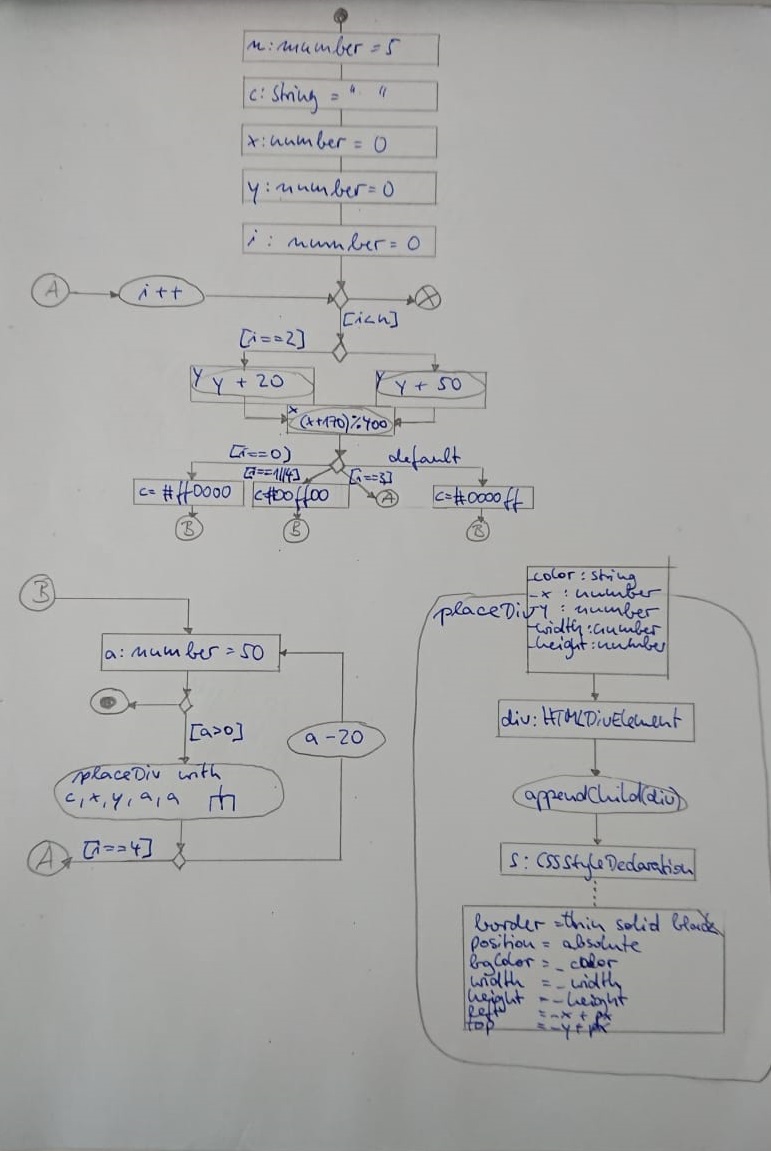 n: number = 5
c: string = " "
x: number = 0
y: number = 0
i: number = 0
A
i++
[i<n]
[i==2]
y
y + 20
y
y + 50
x
(x+170)%400
[i==0]
[i==1||4]
[i==3]
default
A
c= #ff0000
c=#00ff00
c=#0000ff
B
B
B
B
a: number = 50
[a>0]
a-20
placeDiv with
c, x, y, a, a
[i==4]
A
placeDiv
_color: string
_x : number
_y : number
_width: number
_height: number
div: HTMLDivElement
appendChild(div)
s: CSSStyleDeclaration
border = thin solid black
position = absolute
bgColor = _color
width = _width
height = _height
left = _x + px
top = _y + px